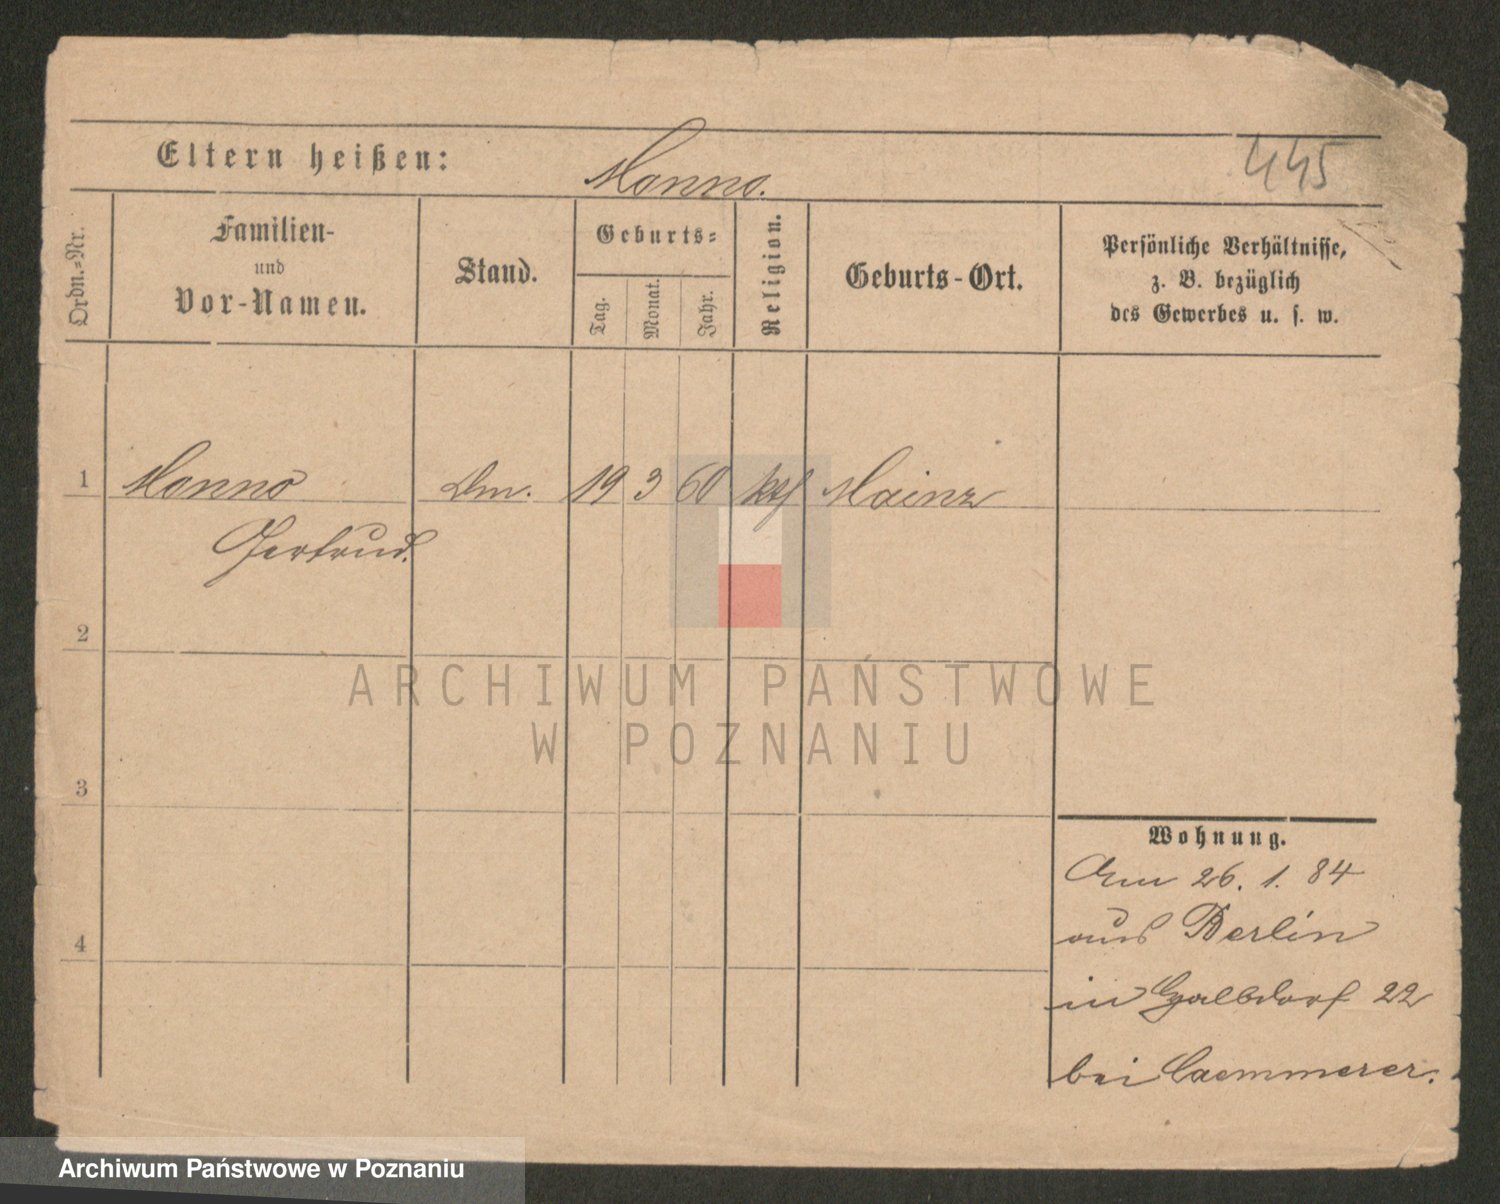 Eltern heißen:
Monno.
445
Ordn.=Nr.
Familien-
und
Vor-Namen.
Stand.
Geburts=
Tag.
Monat.
Jahr.
Religion.
Geburts-Ort.
Persönliche Verhältnisse,
z. B. bezüglich
des Gewerbes u. s. w.
1
Monno
19
3
60
kth
Mainz
Gertrud.
2
3
4
Wohnung.
Am 26. 1. 84
aus Berlin
in 22
bei Caemmerer.
ARCHIWUM PAŃSTWOWE
W POZNANIU
Archiwum Państwowe w Poznaniu